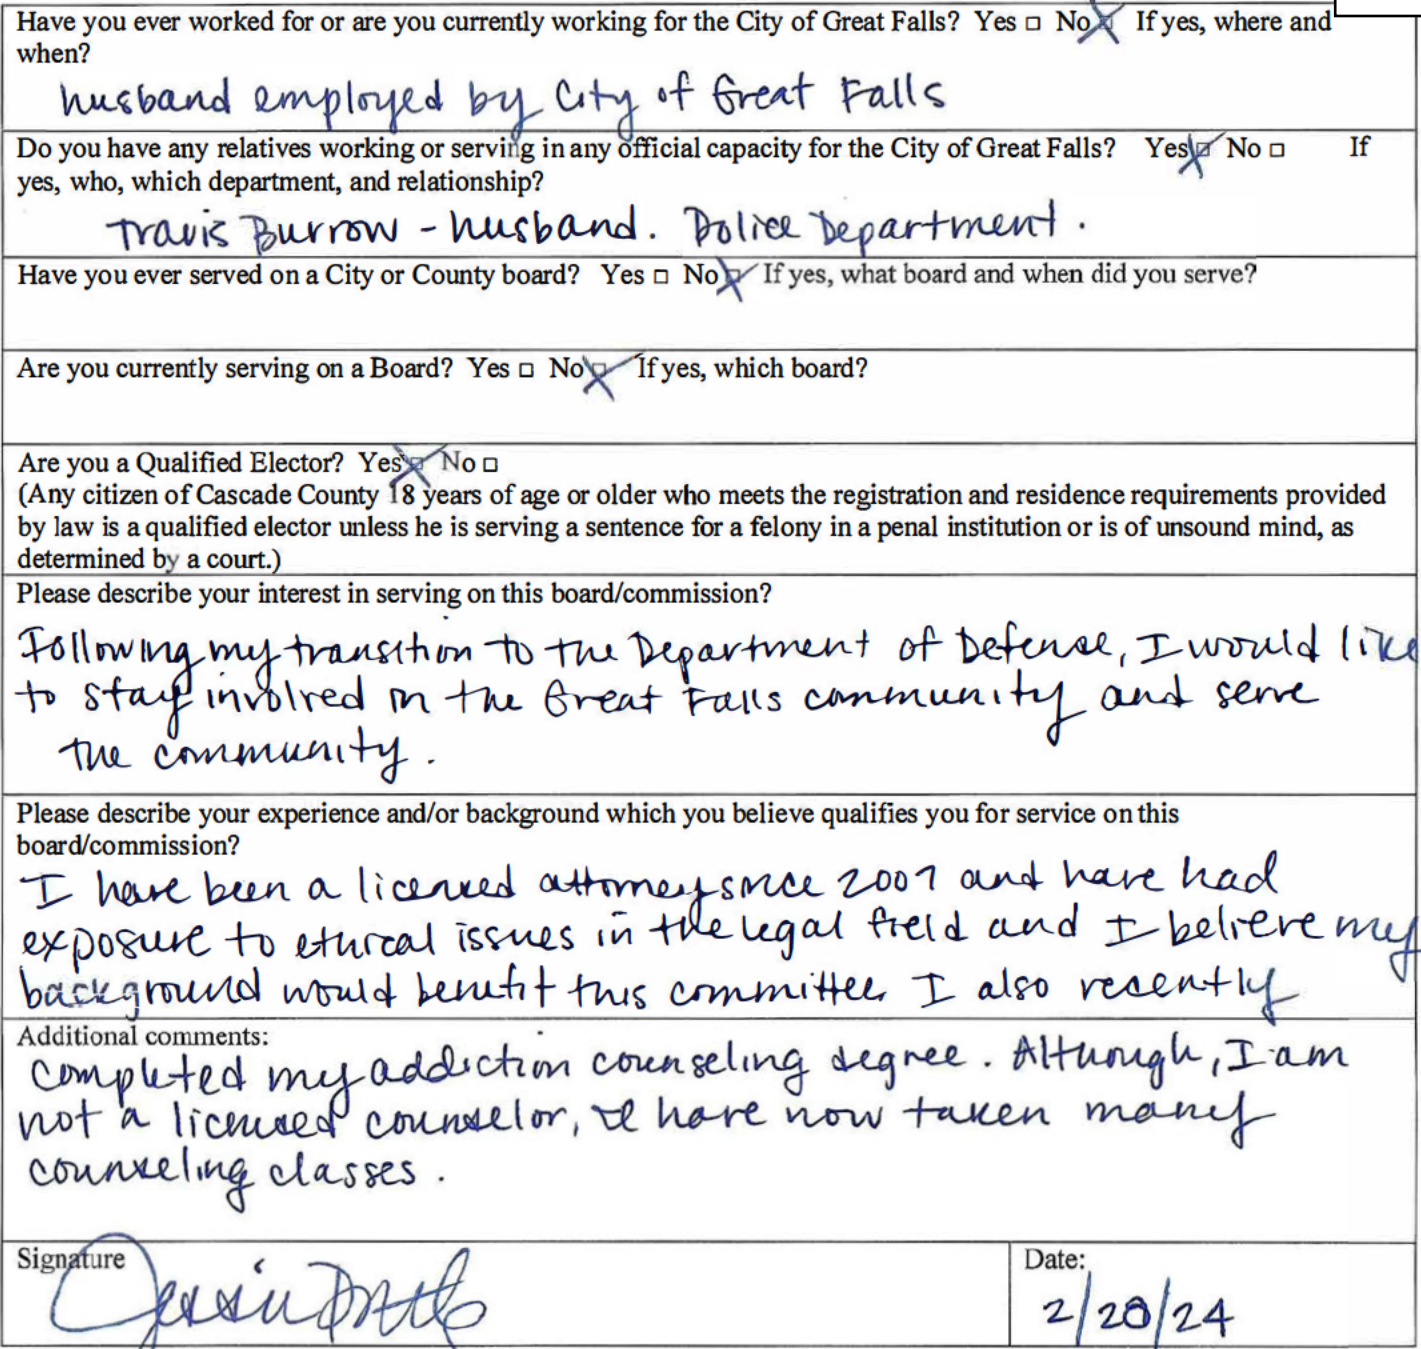 Have you ever worked for or are you currently working for the City of Great Falls? Yes □ No ☒ If yes, where and
when?
husband employed by City of Great Falls
Do you have any relatives working or serving in any official capacity for the City of Great Falls? Yes ☒ No □ If
yes, who, which department, and relationship?
Travis Burrow - husband. Police Department.
Have you ever served on a City or County board? Yes □ No ☒ If yes, what board and when did you serve?
Are you currently serving on a Board? Yes □ No ☒ If yes, which board?
Are you a Qualified Elector? Yes ☒ No □
(Any citizen of Cascade County 18 years of age or older who meets the registration and residence requirements provided
by law is a qualified elector unless he is serving a sentence for a felony in a penal institution or is of unsound mind, as
determined by a court.)
Please describe your interest in serving on this board/commission?
Following my transition to the Department of Defense, I would like
to stay involved in the Great Falls community and serve
the community.
Please describe your experience and/or background which you believe qualifies you for service on this
board/commission?
I have been a licensed attorney since 2007 and have had
exposure to ethical issues in the legal field and I believe my
background would benefit this committee. I also recently
Additional comments:
completed my addiction counseling degree. Although, I am
not a licensed counselor, I have now taken many
counseling classes.
Signature
Date:
2/20/24